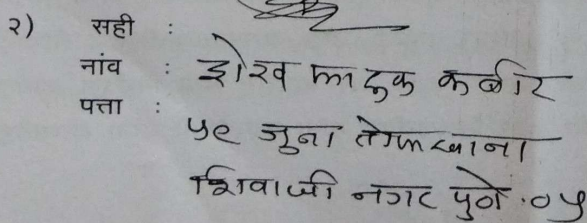 २) सही :
नांव : शेख फारुक कबीर
पत्ता :
५९ जुना तोफखाना
शिवाजी नगर पुणे.०५